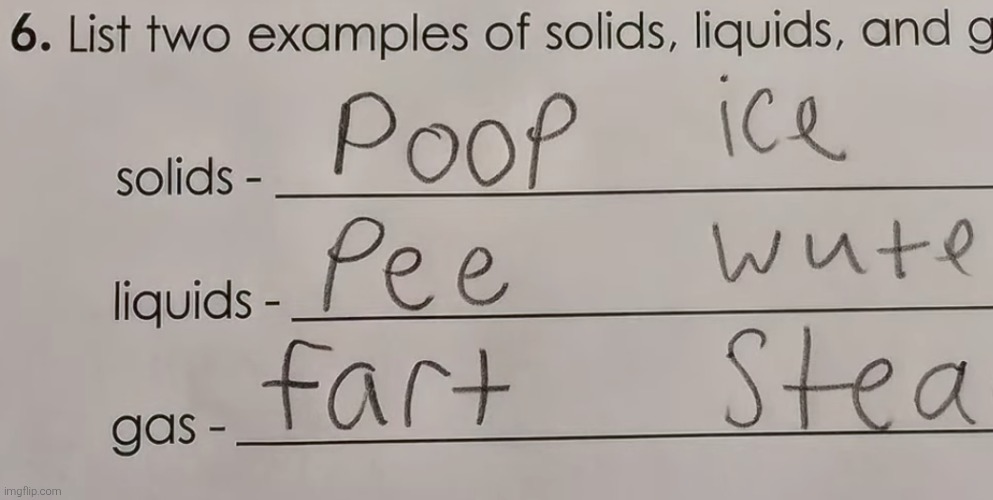 6. List two examples of solids, liquids, and g
solids - Poop ice
liquids - Pee wute
gas - fart Stea
imgflip.com